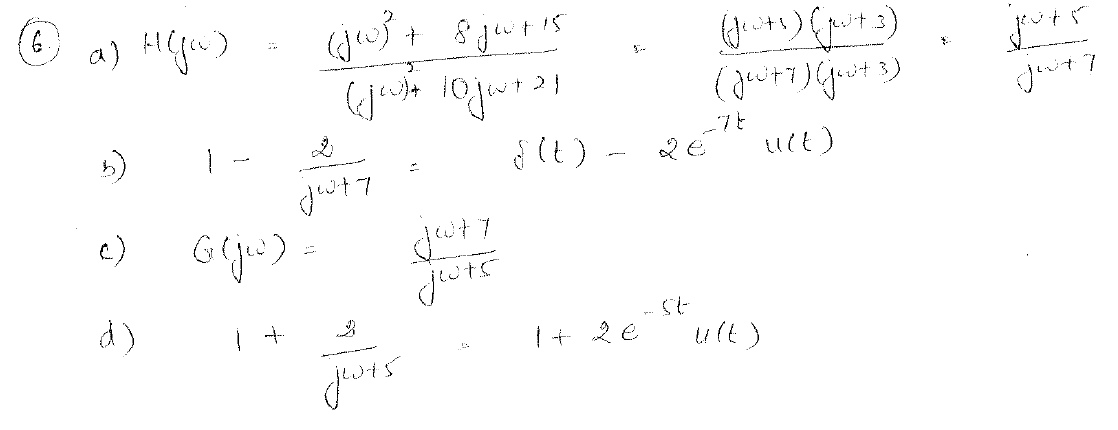 6. a) H(jω) = ((jω)² + 8jω + 15) / ((jω)² + 10jω + 21) = ((jω+5)(jω+3)) / ((jω+7)(jω+3)) = (jω+5) / (jω+7)
b) 1 - 2 / (jω+7) = δ(t) - 2e^{-7t} u(t)
c) G(jω) = (jω+7) / (jω+5)
d) 1 + 2 / (jω+5) = 1 + 2e^{-5t} u(t)